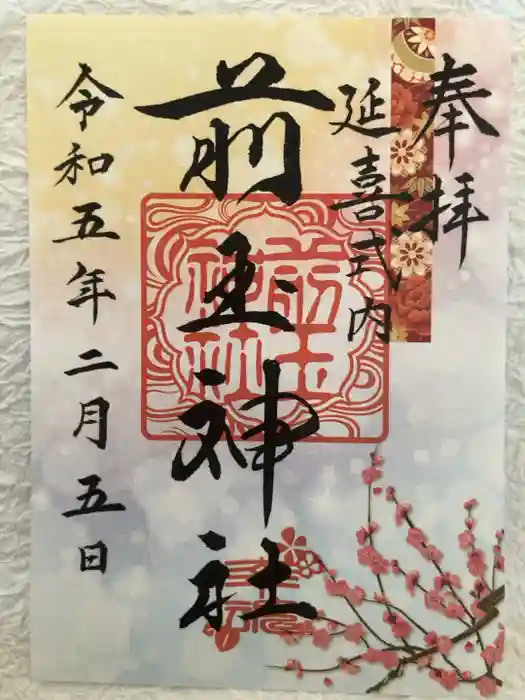 奉拝
延喜式内
前玉神社
前玉神社
令和五年二月五日